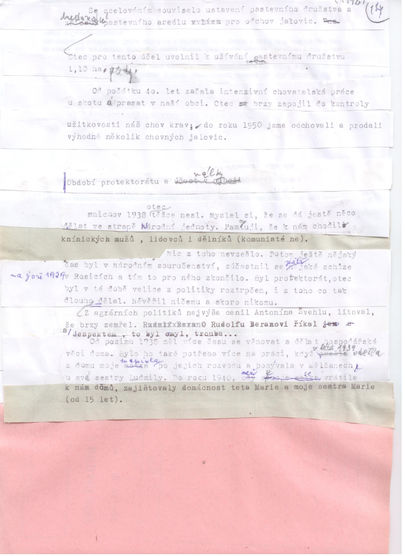 Se scelováním souviselo ustavení pastevního družstva a
pastevního areálu pro odchov jalovic.
Otec pro tento účel uvolnil k užívání pastevnímu družstvu
1,15 ha
Od počátku let začala intenzivní chovatelská práce
u skotu a prasat v naší obci. Otec se brzy zapojil do kontroly
užitkovosti náš chov krav, do roku 1950 jsme odchovali a prodali
výhodně několik chovných jalovic.
Období protektorátu a války
otec
Mnichov 1938 těžce nesl. Myslel si, že se dá ještě něco
dělat ve straně Národní jednoty. Pamatuji, že k nám chodilo
mužů, lidovci i dělníků (komunisté ne).
nic z toho nevzešlo. Potom ještě nějaký
čas byl v národním souručenství, zúčastnil se jaké schůze
na jaře 1939 v Rosicích a tím to pro něho skončilo. Byl protektorát, otec
byl v té době velice z politiky roztrpčen, i z toho co tak
dlouho dělal. Nevěřil ničemu a skoro nikomu.
Z agrárních politiků nejvýše cenil Antonína Švehlu, litoval,
že brzy zemřel. Rudolfu Beranovi říkal
s despektem, to byl
Od podzimu 1938 měl více času se věnovat a dělat hospodářské
věci doma. Bylo ho také potřeba více na práci, když v létě 1939 odešla
z domu moje maminka po jejich rozvodu a pobývala v
u své sestry Ludmily. Do roku 1940, než se k vrátila
k nám domů, zajišťovaly domácnost teta Marie a moje sestra Marie
(od 15 let).